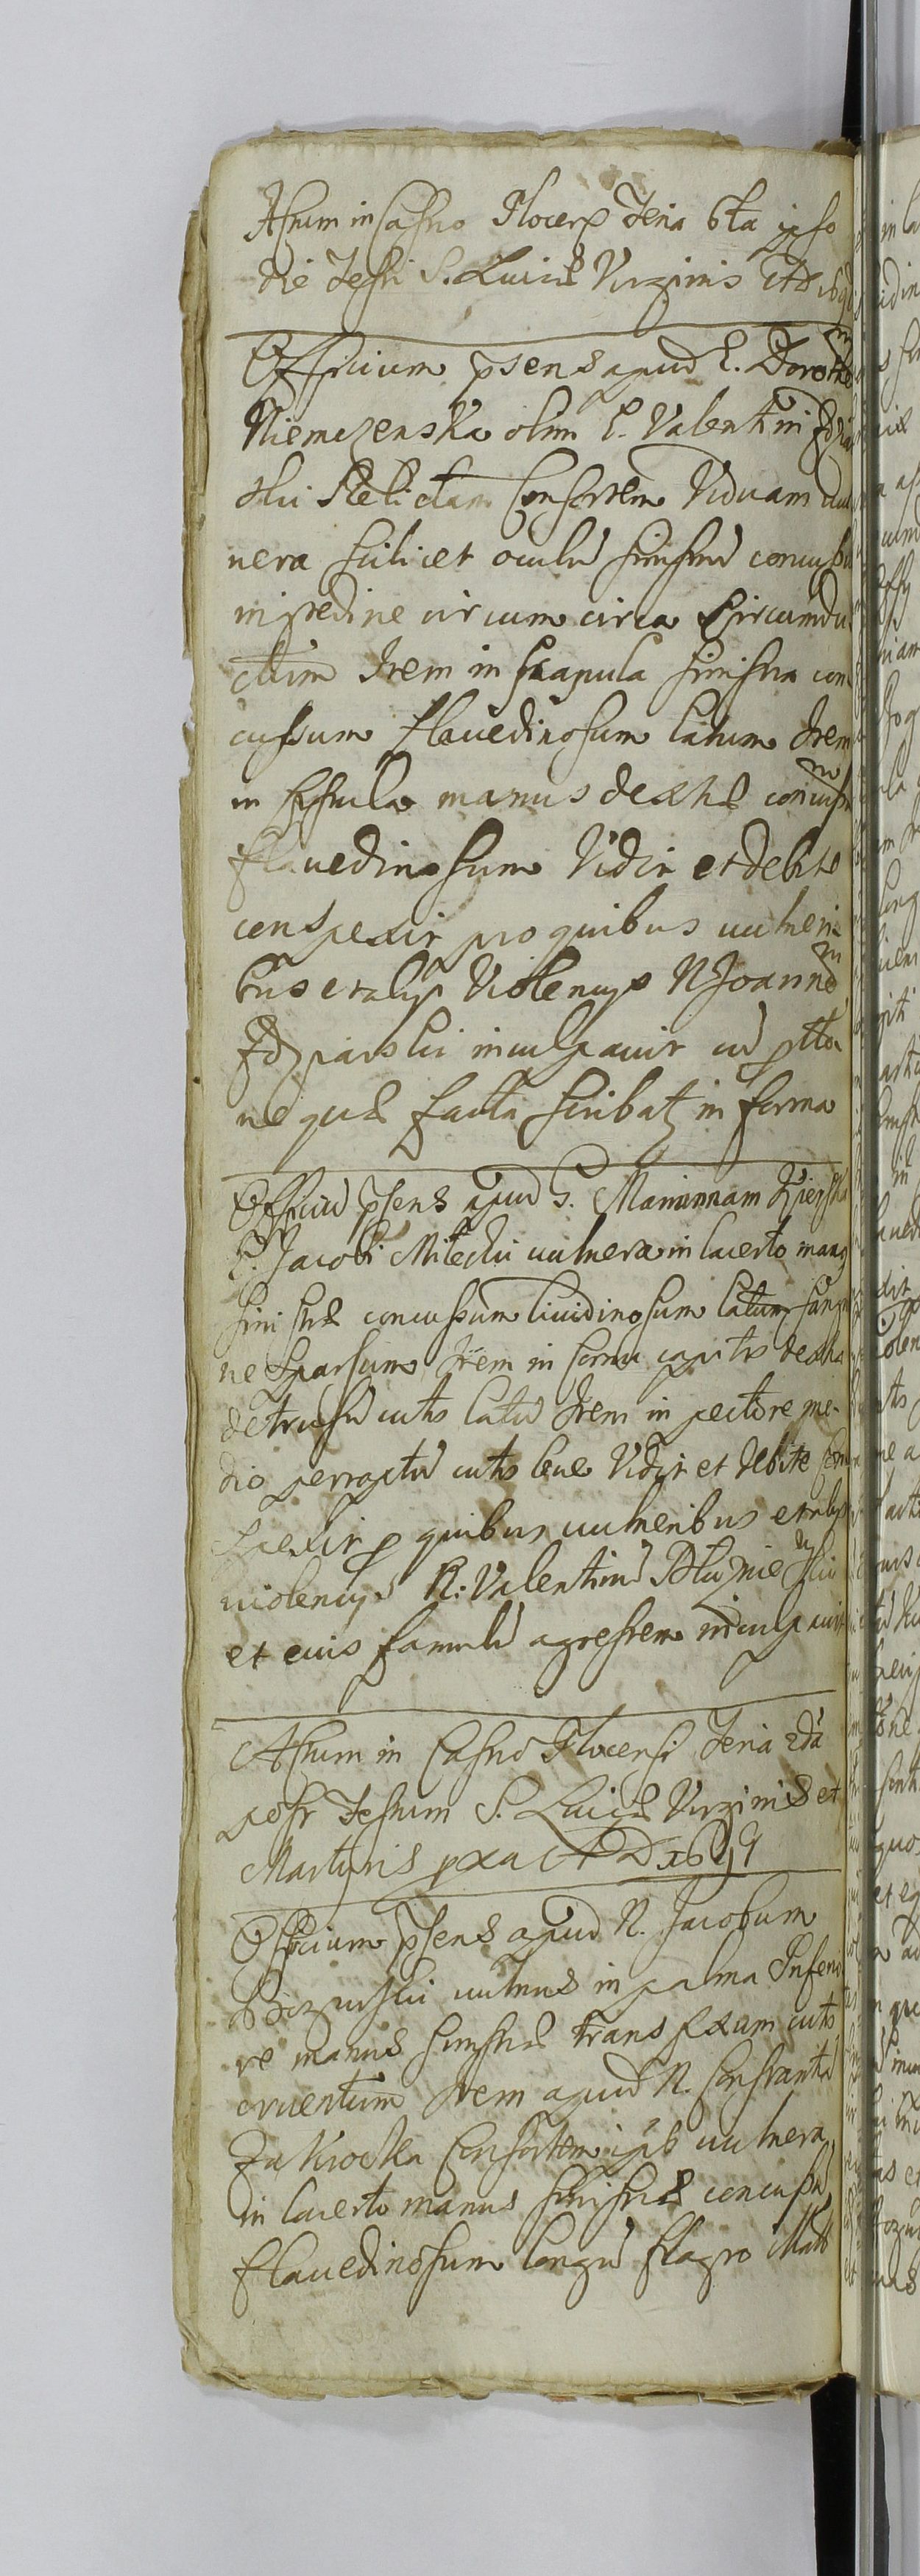 Actum in Castro Plocen Feria 6ta ipso
die Festi S. Luciæ Virginis AD
Officium psens apud G. Doroth
Niemczenska olim G. Valentini
ski Relictam Consortem Viduam vul
nera scilicet oculũ sinistrũ concussũ
nigredine circum circa Circumdu
ctum Item in scapula sinistra con
cussum flavedinosum latum Item
in fistula manus dextræ concussum
flavedinosum Vidit et debite
conspexit pro quibus vulneri
bus et alys Violencys N Joannē
inculpavit
ne quæ facta scribat in forma
Officiũ psens apud G. Mariannam
G. Jacobi Miteckii vulnera in lacerto manus
sinistræ concussum lividinosum latum sangvi
ne sparsum Item in cornu capitis dextro
detrusũ cutis latũ Item in pectore me-
dio perruptũ cutis leve Vidit et debite con
spexit p quibus vulneribus et alys
violencys N. Valentinũ
et eius famulũ agrestem inculpavit
Actum in Castro Plocensi Feria 2da
post Festum S. Luciæ Virginis et
Martyris pxa A D 1699
Officium psens apud N. Jacobum
vulnus in palma Inferio
re manus sinistræ transfixum cutis
cruentum Item apud N. Constantiã
Zakrocka Consortem ipsius vulnera
in lacerto manus sinistræ concussũ
flavedinosum longũ flagro